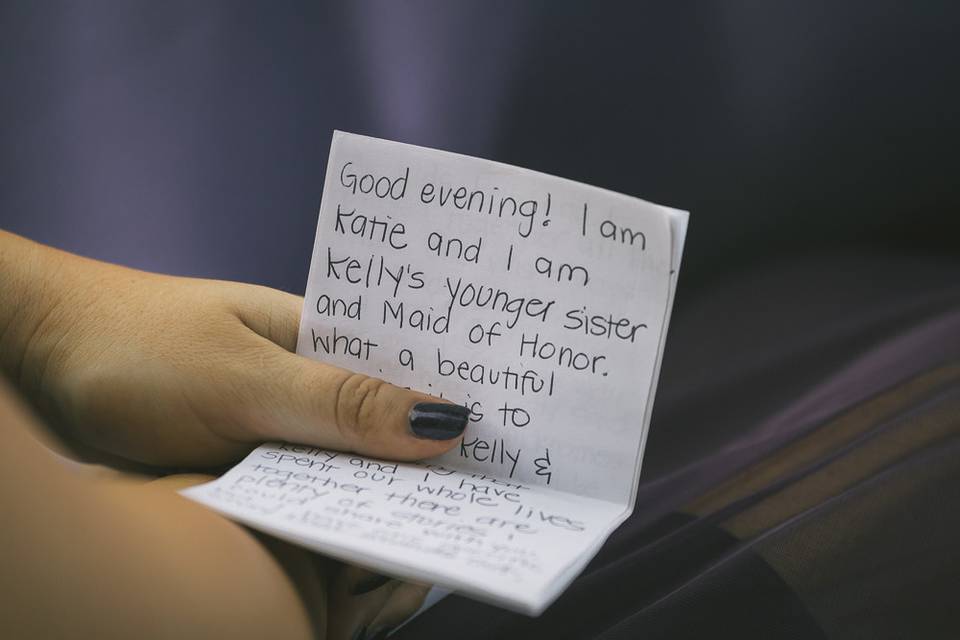 Good evening! I am
Katie and I am
Kelly's younger sister
and Maid of Honor.
What a beautiful
it is to
Kelly &
Kelly and I have
spent our whole lives
together there are
plenty of stories I
share with you